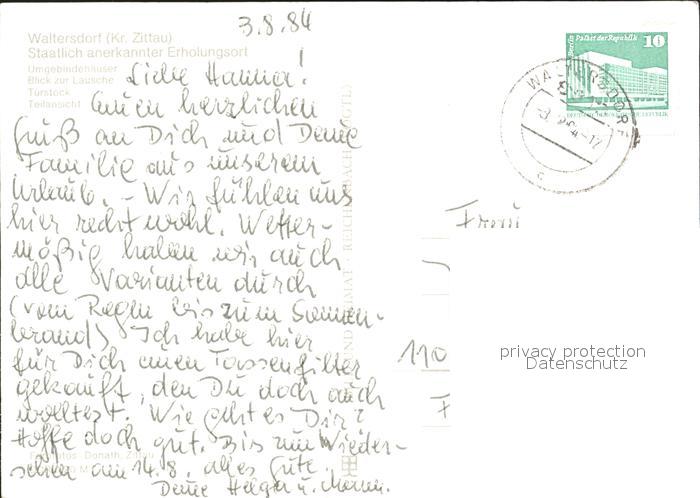 3.8.84
Waltersdorf (Kr. Zittau)
Staatlich anerkannter Erholungsort
Umgebindehäuser
Blick zur Lausche
Türstock
Teilansicht
Liebe Hanna!
Einen herzlichen
Gruß an Dich und Deine
Familie aus unserem
Urlaub. - Wir fühlen uns
hier recht wohl. Wetter-
mäßig haben wir auch
alle Varianten durch
(vom Regen bis zum Sonnen-
brand). Ich habe hier
für Dich einen Tassenfilter
gekauft, den Du doch auch
wolltest. Wie geht es Dir?
Hoffe doch gut. Bis zum Wieder-
sehen am 14.8. alles Gute.
Deine Helga u.
Donath, Zittau
REICHENBACH
Berlin Palast der Republik
10
DEUTSCHE DEMOKRATISCHE REPUBLIK
WALTERSDORF
Frau
110
privacy protection
Datenschutz